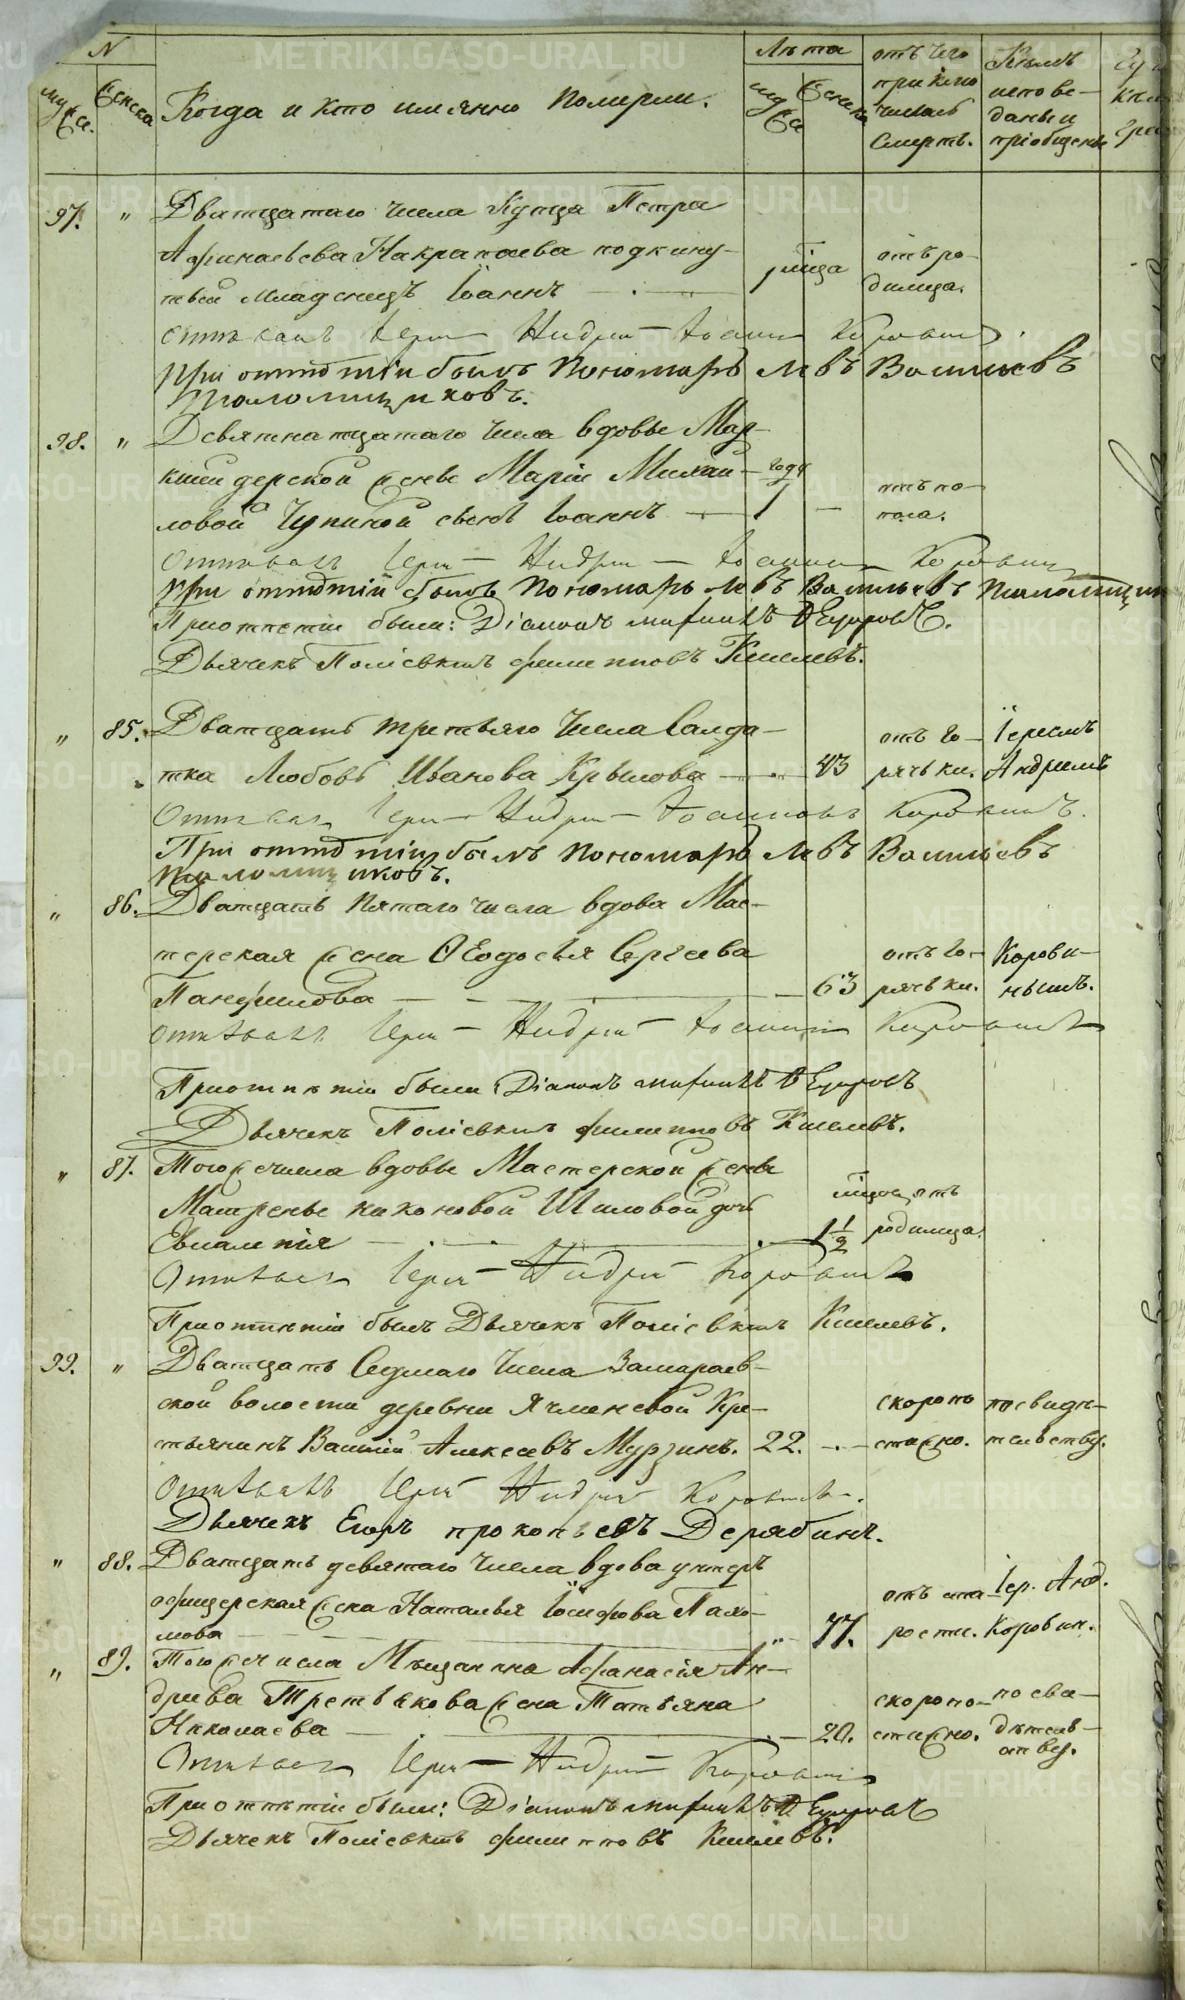 N
мужеска.
Женска
Когда и кто имянно померли.
Лѣта
мужеска
Женска
отъ чего
приклю
чилась
смерть.
Кѣмъ
испове-
даны и
пріобщены
97. " Дватцатаго числа Купца Петра
Афинаевева Накрапаева подкину-
тый младенецъ Іоаннъ 1 мѣца отъ ро-
димца.
отпѣвалъ Іерей Андрей Іоаннов Коровинъ.
При отпѣтіи былъ Пономарь Левъ Васильевъ
Тополомщиковъ.
98. " Девятнатцатаго числа вдовы Мар-
кшейдерской жены Маріи Михай-
ловой Чупиной сынъ Іоаннъ — года 1 — отъ по-
носа.
отпѣвалъ Іерей Андрей Іоаннов Коровинъ
При отпѣтіи былъ Пономарь Левъ Васильевъ
При отпетіи были: Діаконъ Ѳ Егоровъ.
Дьячекъ Полієвктъ Филипповъ Киселевъ.
" 85. Дватцать третьяго числа Салда-
тка Любовь Иванова Крылова — 43 отъ го-
рячьки. Іереемъ
Андреемъ
Отпѣвалъ Іерей Андрей Іоанновъ Коровинъ.
При отпѣтіи былъ Пономарь Левъ Васильевъ
" 86. Дватцать пятаго числа вдова Мас-
терская жена Ѳеодосья Сергеева
Панфилова — 63 отъ го-
рячьки. Корови-
нымъ.
отпѣвалъ Іерей Андрей Іоаннов Коровинъ
При отпѣтіи были Діаконъ Ѳ Егоровъ
Дьячекъ Полієвктъ Филипповъ Киселевъ.
" 87. Того же числа вдовы Мастерской жены
Матрены Никоновой Шиловой дочь
Евлампія — 1½ мѣца отъ
родимца.
Отпѣвалъ Іерей Андрей Коровинъ
При отпѣтіи былъ Дьячекъ Полієвктъ Киселевъ.
99. " Дватцать Седмаго числа Замараев-
ской волости деревни Ячменевой Кре-
стьянинъ Василій Алексеевъ Мурзинъ. 22. — скоропо
стижно. по свидѣ-
тельству.
Отпѣвалъ Іерей Андрей Коровинъ.
Дьячекъ Егоръ Прокопьевъ Дерябинъ.
" 88. Дватцать девятаго числа вдова унтеръ
офицерская жена Наталья Іосифова Пахо-
мова — " 77. отъ ста-
рости. Іер. Анд.
Коровин.
" 89. Того же числа Мѣщанина Афанасія Ан-
дреева Третьякова жена Татьяна
Николаева — 20. скоропо-
стижно. по сви-
дѣтель-
ству.
Отпѣвалъ Іерей Андрей Коровинъ
При отпѣтіи были: Діаконъ Ѳ Егоровъ
Дьячекъ Полієвктъ Филипповъ Киселевъ.
METRIKI.GASO-URAL.RU